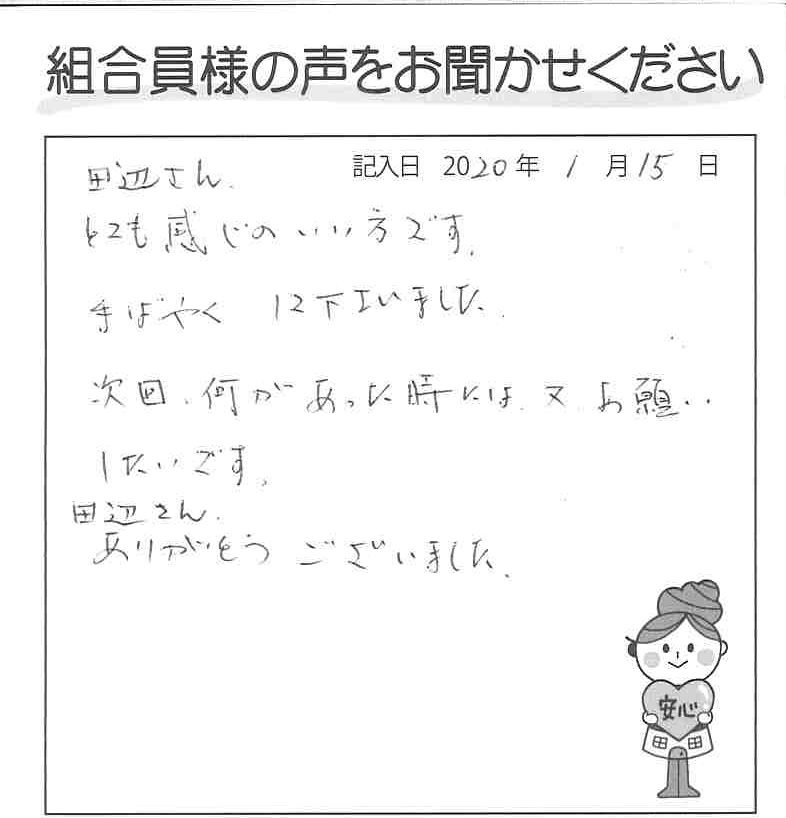 組合員様の声をお聞かせください
記入日 2020年 1月15日
田辺さん.
とても感じのいい方です.
手ばやく に下さいました.
次回、何があった時には、又、お願い
したいです.
田辺さん.
ありがとうございました.
安心